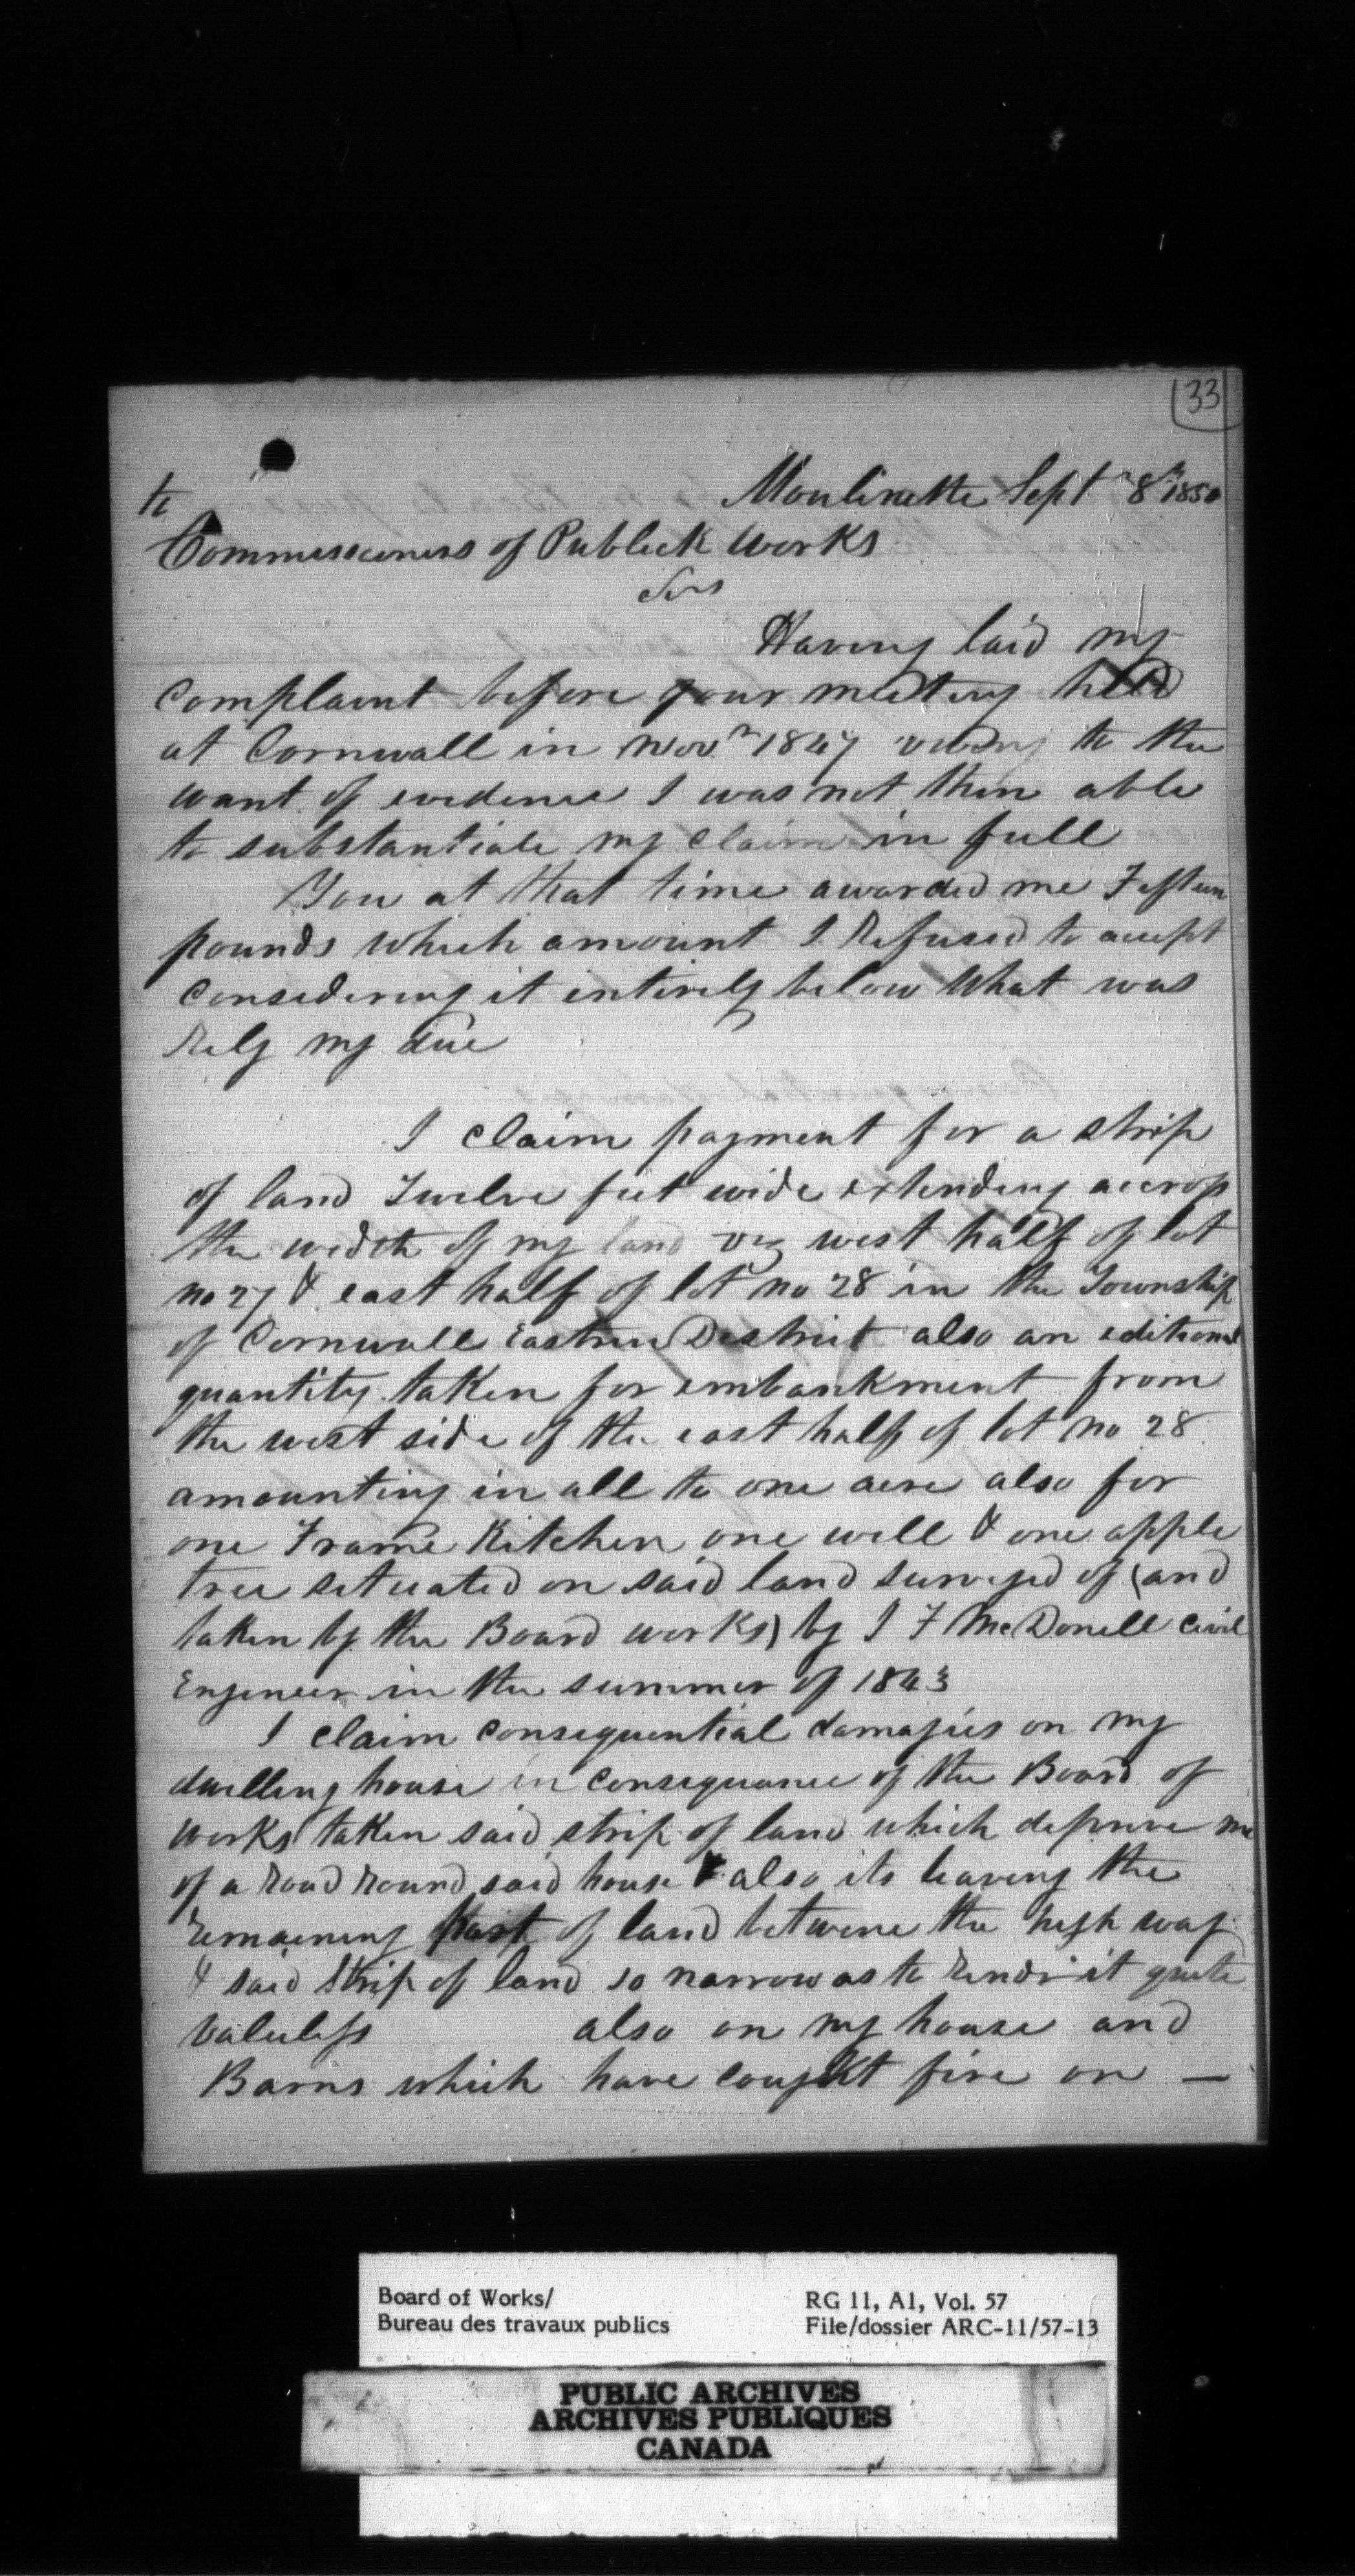 33
Moulinette Sept 8th 1850
to
Commissioners of Publick Works
Sirs
Having laid my
complaint before your meeting held
at Cornwall in Novr 1847 owing to the
want of evidence I was not then able
to substantiate my claim in full
You at that time awarded me Fifteen
pounds which amount I Refused to accept
considering it entirely below What was
Rely my due
I claim payment for a strip
of land Twelve feet wide extending accross
the width of my land viz west half of lot
no 27 & east half of lot no 28 in the Township
of Cornwall Eastren District also an editional
quantity taken for embankment from
the west side of the east half of lot no 28
amounting in all to one acre also for
one Frame Kitchen one well & one apple
tree situated on said land surveyed of (and
taken by the Board works) by J F McDonell Civil
Engeneer in the summer of 1843
I claim consequential damagies on my
dwelling house in consequance of the Board of
works taken said strip of land which deprive me
of a Road Round said house & also its leaving the
Remaening part of land betwene the high way
& said Strip of land so narrow as to Render it quite
valuless also on my house and
Barns which have caught fire on —
Board of Works/
Bureau des travaux publics
RG 11, A1, Vol. 57
File/dossier ARC-11/57-13
PUBLIC ARCHIVES
ARCHIVES PUBLIQUES
CANADA